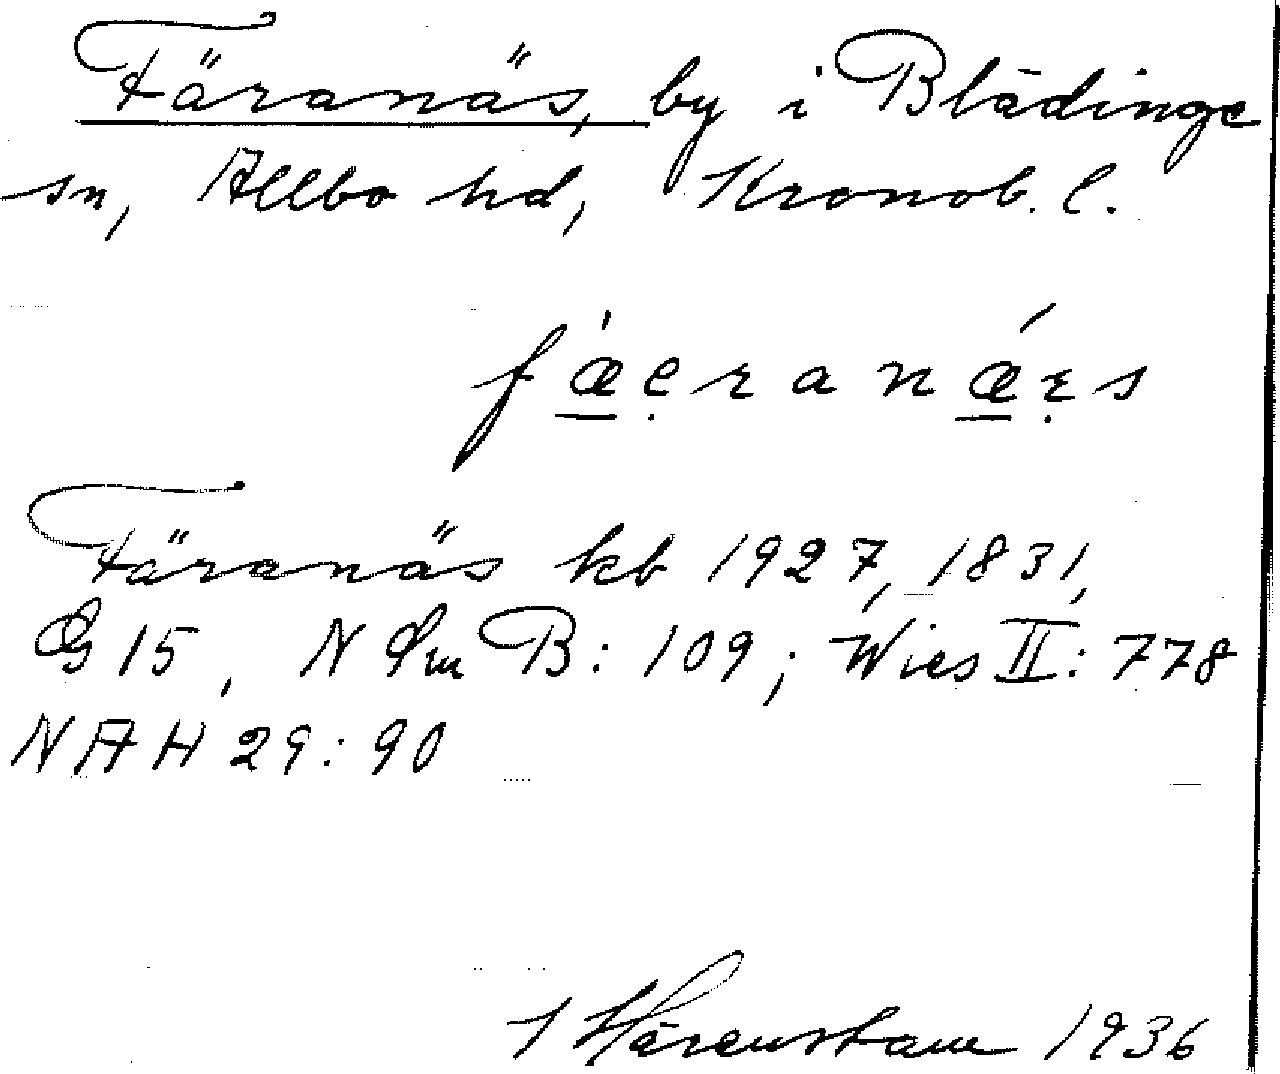 Färanäs, by i Blädinge
sn, Allbo hd, Kronob. l.
fæ̀ẹranǽẹs
Färanäs kb 1927, 1831,
G 15, N Sm B: 109; Wies II: 778
NAH 29: 90
Härenstam 1936